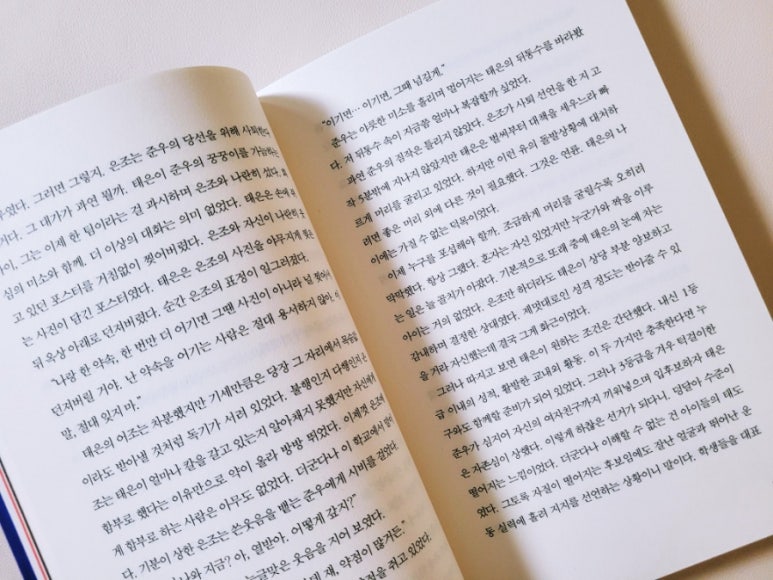 우였다. 그러면 그렇지. 은조는 준우의 당선을 위해 사퇴한
거다. 그 대가가 과연 뭘까. 태은이 준우의 꿍꿍이를 가늠하는
사이, 그는 이제 한 팀이라는 걸 과시하며 은조와 나란히 섰다. 회
심의 미소와 함께. 더 이상의 대화는 의미 없었다. 태은은 손에 쥐
고 있던 포스터를 거침없이 찢어버렸다. 은조와 자신이 나란히 웃
는 사진이 담긴 포스터였다. 태은은 은조의 사진을 아무지게 뭉쳐
뒤 옥상 아래로 던져버렸다. 순간 은조의 표정이 일그러졌다.
"나랑 한 약속, 한 번만 더 어기면 그땐 사진이 아니라 널 찢어서
던져버릴 거야. 난 약속을 어기는 사람은 절대 용서하지 않아. 이
말, 절대 잊지 마."
태은의 어조는 차분했지만 기세만큼은 당장 그 자리에서 목숨
이라도 받아낼 것처럼 독기가 서려 있었다. 불행인지 다행인지 은
조는 태은이 얼마나 칼을 갈고 있는지 알아채지 못했지만 자신에게
함부로 했다는 이유만으로 약이 올라 방방 뛰었다. 이제껏 은조에
게 함부로 하는 사람은 아무도 없었다. 더군다나 이 학교에서
다. 기분이 상한 은조는 쓴웃음을 뱉는 준우에게 시비를 걸었다.
지금? 아, 열받아. 어떻게 갚지?"
웃음을 지어 보였다.
쟤, 약점이 많거든."
쥐고 있었다.
"이기면… 이기면, 그때 넘길게."
준우는 야릇한 미소를 흘리며 멀어지는 태은의 뒤통수를 바라봤
다. 저 뒤통수 속이 지금쯤 얼마나 복잡할까 싶었다.
과연 준우의 짐작은 틀리지 않았다. 은조가 사퇴 선언을 한 지 고
작 5분밖에 지나지 않았지만 태은은 벌써부터 대책을 세우느라 빠
르게 머리를 굴리고 있었다. 하지만 이런 유의 돌발상황에 대처하
려면 좋은 머리 외에 다른 것이 필요했다. 그것은 연륜. 태은의 나
이에는 가질 수 없는 덕목이었다.
이제 누구를 포섭해야 할까. 조급하게 머리를 굴릴수록 오히려
막막했다. 항상 그랬다. 혼자는 자신 있었지만 누군가와 짝을 이루
는 일은 늘 골치가 아팠다. 기본적으로 또래 중에 태은의 눈에 차는
아이는 거의 없었다. 은조만 하더라도 태은이 상당 부분 양보하고
감내하며 결정한 상대였다. 제멋대로인 성격 정도는 받아줄 수 있
을 거라 자신했는데 결국 그게 화근이었다.
그러나 따지고 보면 태은이 원하는 조건은 간단했다. 내신 1등
급 이내의 성적, 활발한 교내외 활동. 이 두 가지만 충족한다면 누
구와도 함께할 준비가 되어 있었다. 그러나 3등급을 겨우 턱걸이한
준우가 심지어 자신의 여자친구까지 끼워넣으며 입후보하자 태은
은 자존심이 상했다. 이렇게 하찮은 선거가 되다니. 덩달아 수준이
떨어지는 느낌이었다. 더군다나 이해할 수 없는 건 아이들의 태도
였다. 그토록 자질이 떨어지는 후보임에도 잘난 얼굴과 뛰어난 운
동 실력에 홀려 지지를 선언하는 상황이니 말이다. 학생들을 대표